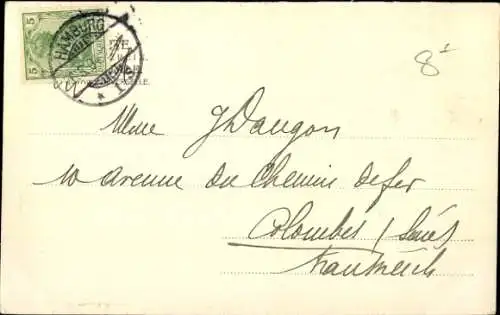 5 5
HAMBURG
8
Mme JDaugon
10 avenue du Chemin de fer
Colombes / Seine
Frankreich